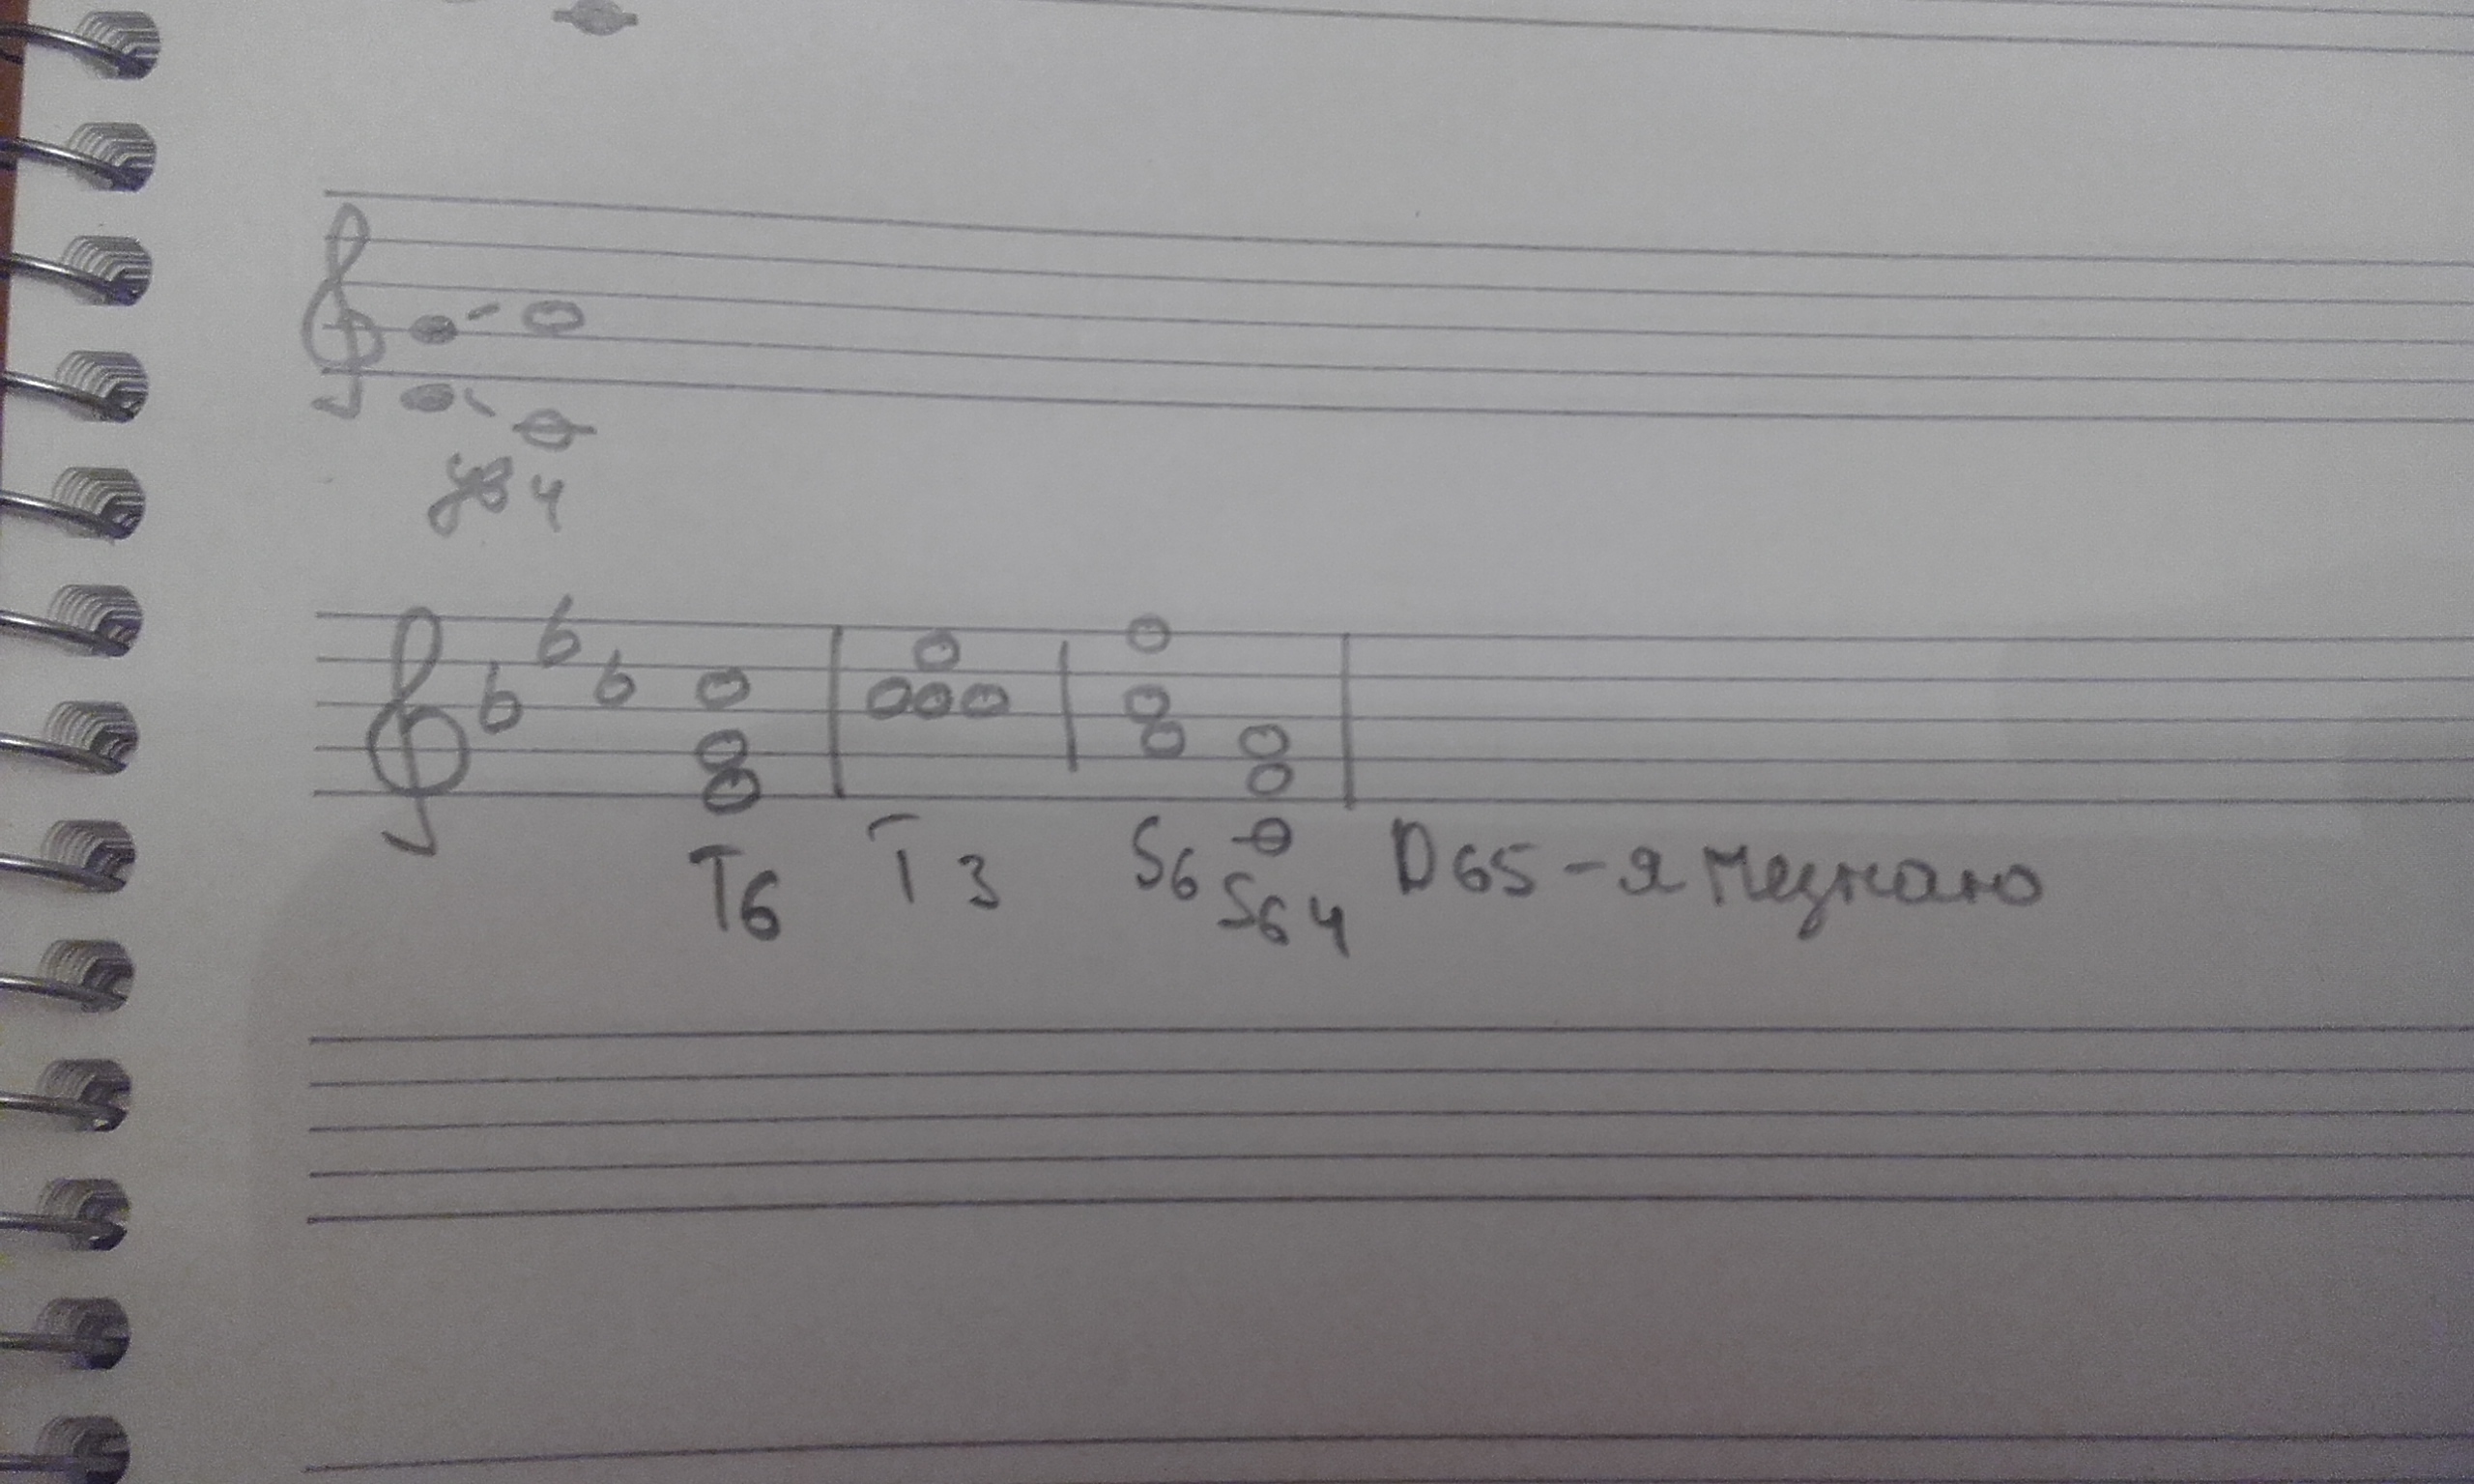 ув 4
T6 T3 S6 S64 D65 - я не знаю